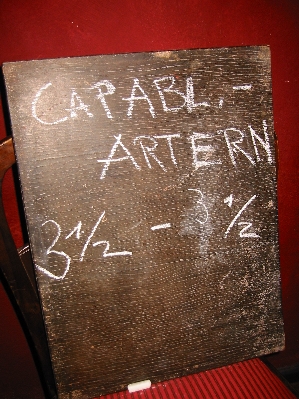 CAPABL. -
ARTERN
3 1/2 - 3 1/2